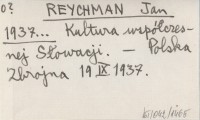 o?
REYCHMAN Jan
1937... Kultura współczes-
nej Słowacji. — Polska
Zbrojna 19 IX 1937.